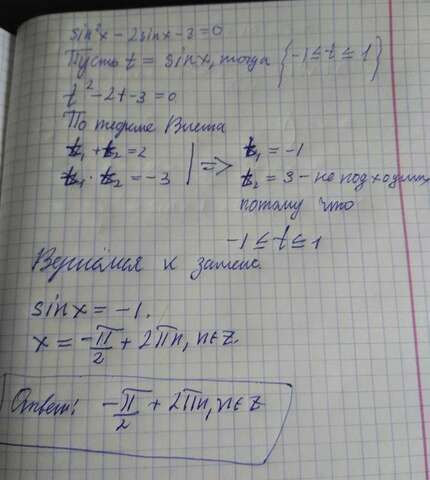 sin²x - 2sinx - 3 = 0
Пусть t = sinx, тогда {-1 ≤ t ≤ 1}
t² - 2t - 3 = 0
По теореме Виета
t₁ + t₂ = 2 | => t₁ = -1
t₁ · t₂ = -3 | t₂ = 3 - не подходит,
потому что
-1 ≤ t ≤ 1
Вернёмся к замене.
sinx = -1.
x = -π/2 + 2πn, n∈z.
Ответ: -π/2 + 2πn, n∈z